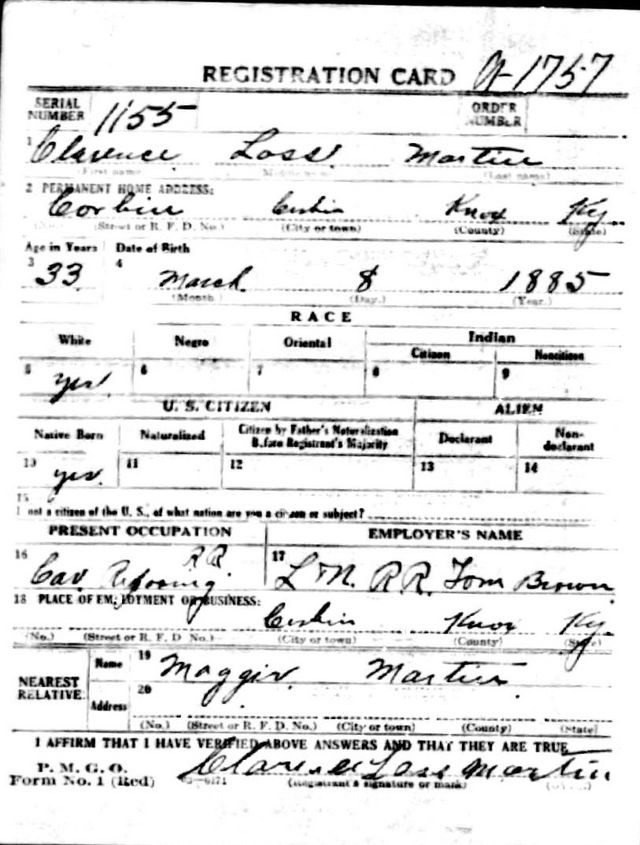 REGISTRATION CARD A-1757
SERIAL NUMBER 1155 ORDER NUMBER
1 Clarence Loss Martin
(First name) (Middle name) (Last name)
2 PERMANENT HOME ADDRESS:
Corbin Corbin Knox Ky.
(No.) (Street or R. F. D. No.) (City or town) (County) (State)
Age in Years Date of Birth
3 33 4 March 8 1885
(Month.) (Day.) (Year.)
RACE
White Negro Oriental Indian
Citizen Noncitizen
5 yes 6 7 8 9
U. S. CITIZEN ALIEN
Native Born Naturalized Citizen by Father's Naturalization Before Registrant's Majority Declarant Non-declarant
10 yes. 11 12 13 14
15
not a citizen of the U. S., of what nation are you a citizen or subject?
PRESENT OCCUPATION EMPLOYER'S NAME
16 Car R.R. 17 L N. R.R. Tom Brown
18 PLACE OF EMPLOYMENT OR BUSINESS:
Corbin Knox Ky
(No.) (Street or R. F. D. No.) (City or town) (County) (State)
NEAREST RELATIVE Name 19 Maggie Martin
Address 20
(No.) (Street or R. F. D. No.) (City or town) (County) (State)
I AFFIRM THAT I HAVE VERIFIED ABOVE ANSWERS AND THAT THEY ARE TRUE
P. M. G. O.
Form No. 1 (Red) Clarence Loss Martin
(Registrant's signature or mark)